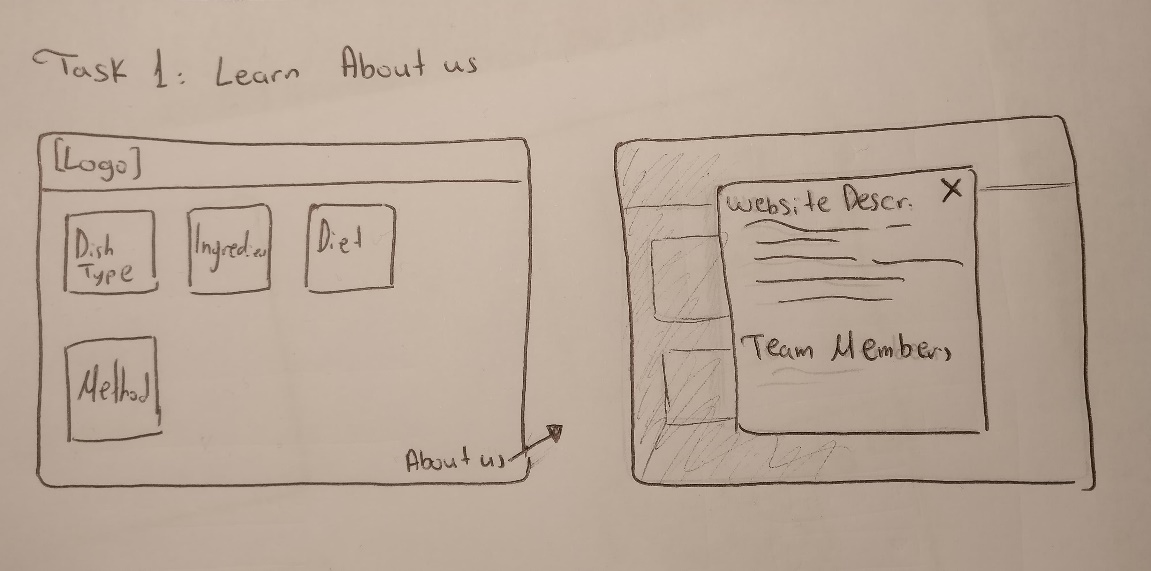 Task 1: Learn About us
[Logo]
Dish
Type
Ingredien
Diet
Method
About us
Website Descr. X
Team Members